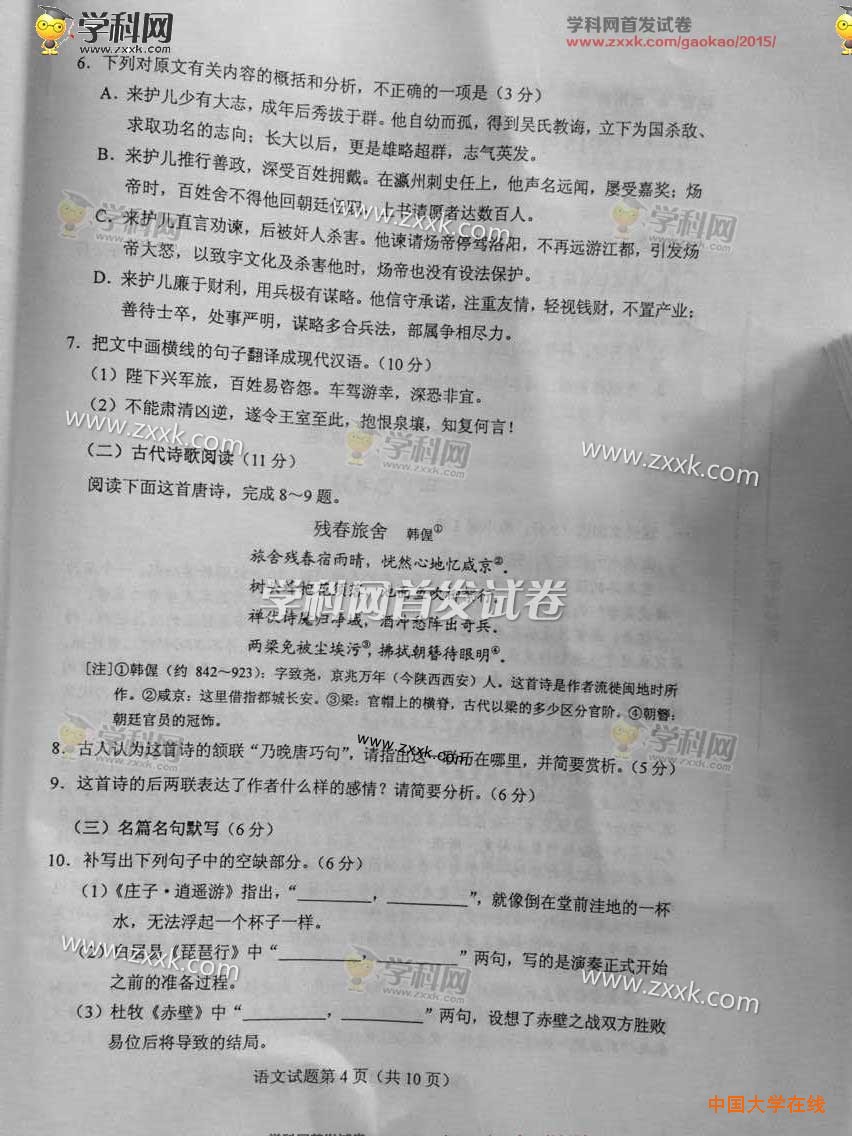 学科网
www.zxxk.com
学科网首发试卷
www.zxxk.com/gaokao/2015/
6. 下列对原文有关内容的概括和分析，不正确的一项是（3 分）
A. 来护儿少有大志，成年后秀拔于群。他自幼而孤，得到吴氏教诲，立下为国杀敌、
求取功名的志向；长大以后，更是雄略超群，志气英发。
B. 来护儿推行善政，深受百姓拥戴。在瀛州刺史任上，他声名远闻，屡受嘉奖；炀
帝时，百姓舍不得他回朝廷 上书请愿者达数百人。
学科网
www.zxxk.com
学科网
C. 来护儿直言劝谏，后被奸人杀害。他谏请炀帝停驾洛阳，不再远游江都，引发炀
帝大怒，以致宇文化及杀害他时，炀帝也没有设法保护。
D. 来护儿廉于财利，用兵极有谋略。他信守承诺，注重友情，轻视钱财，不置产业；
善待士卒，处事严明，谋略多合兵法，部属争相尽力。
7. 把文中画横线的句子翻译成现代汉语。（10 分）
（1）陛下兴军旅，百姓易咨怨。车驾游幸，深恐非宜。
（2）不能肃清凶逆，遂令王室至此，抱恨泉壤，知复何言！
www.zxxk.com
学科网
www.zxxk.com
（二）古代诗歌阅读（11 分）
阅读下面这首唐诗，完成 8～9 题。
残春旅舍 韩偓①
旅舍残春宿雨晴，恍然心地忆咸京②。
树头
学科网首发试卷
禅伏诗魔归净域，酒冲愁阵出奇兵。
两梁免被尘埃污③，拂拭朝簪待眼明④。
[注]①韩偓（约 842～923）：字致尧，京兆万年（今陕西西安）人。这首诗是作者流徙闽地时所
作。②咸京：这里借指都城长安。③梁：官帽上的横脊，古代以梁的多少区分官阶。④朝簪：
朝廷官员的冠饰。
学科网
www.zxxk.com
学科网
8. 古人认为这首诗的颔联“乃晚唐巧句”，请指出这 巧在哪里，并简要赏析。（5 分）
9. 这首诗的后两联表达了作者什么样的感情？请简要分析。（6 分）
（三）名篇名句默写（6 分）
10. 补写出下列句子中的空缺部分。（6 分）
（1）《庄子·逍遥游》指出，“________，________”，就像倒在堂前洼地的一杯
水，无法浮起一个杯子一样。
（2）白居易《琵琶行》中“________，________”两句，写的是演奏正式开始
之前的准备过程。
www.zxxk.com
学科网
www.zxxk.com
（3）杜牧《赤壁》中“________，________”两句，设想了赤壁之战双方胜败
易位后将导致的结局。
语文试题第 4 页（共 10 页）
中国大学在线
学科网首发试卷